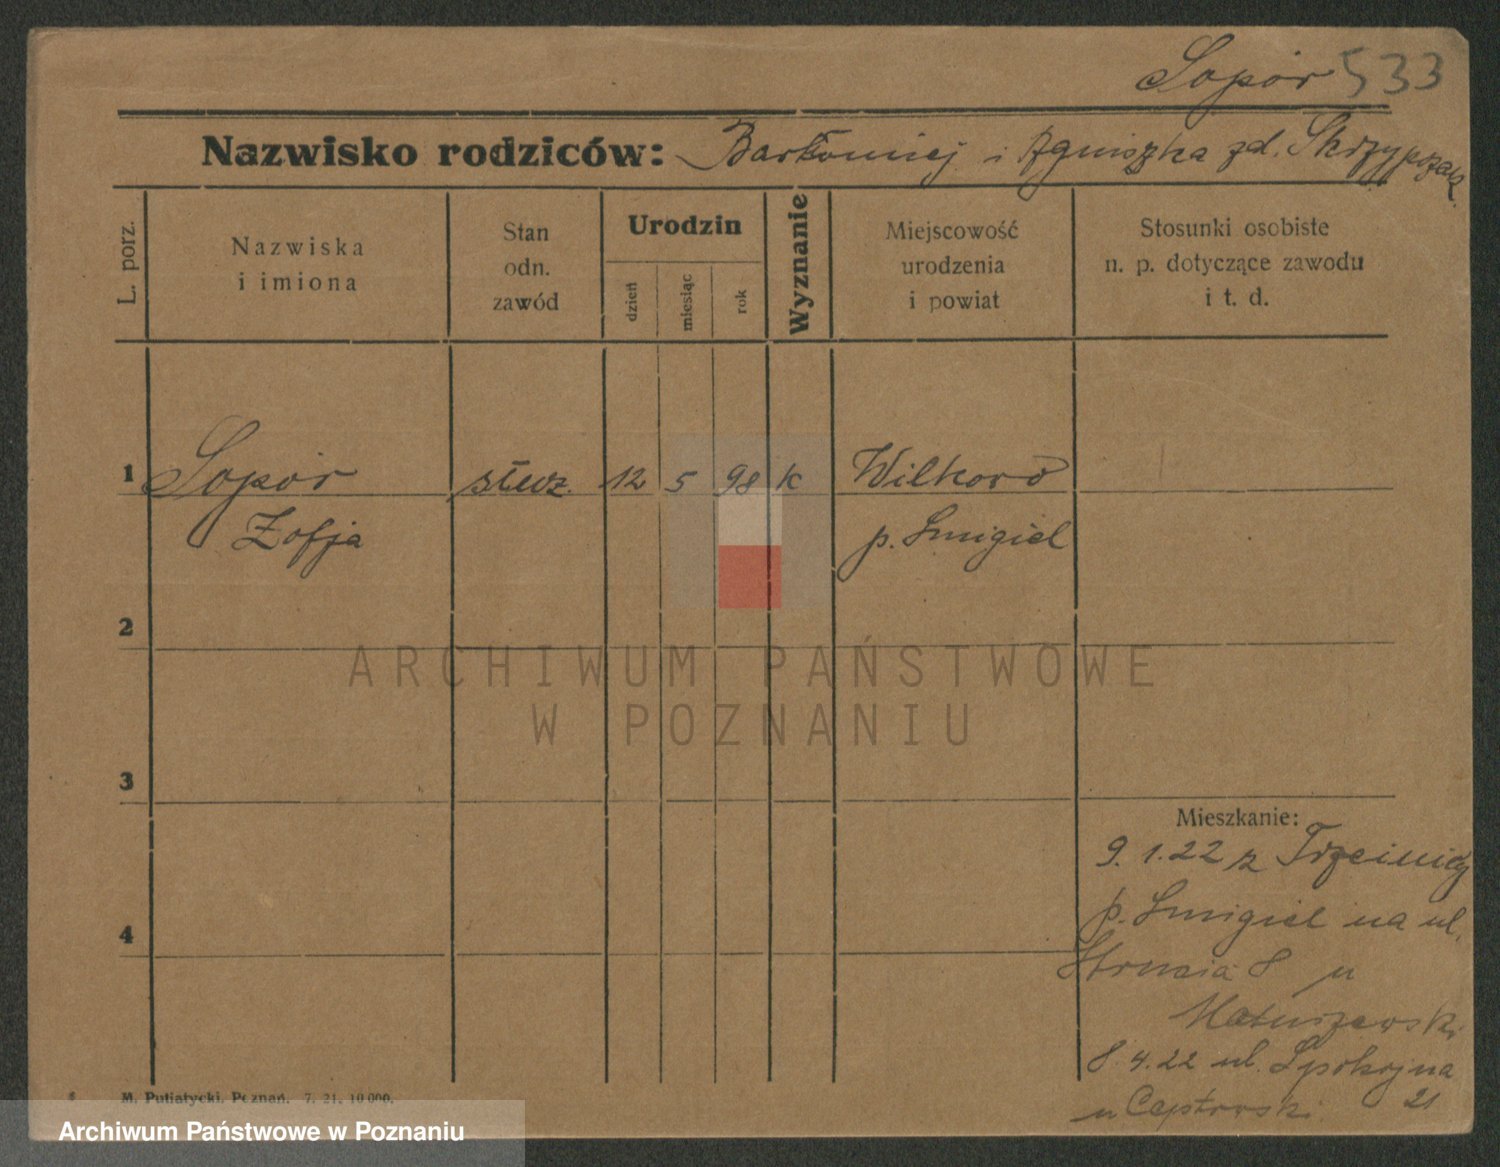 Sopór 533
Nazwisko rodziców: Bartomiej i Agniszka zd. Skrzypczak
L. porz.
Nazwiska
i imiona
Stan
odn.
zawód
Urodzin
dzień
miesiąc
rok
Wyznanie
Miejscowość
urodzenia
i powiat
Stosunki osobiste
n. p. dotyczące zawodu
i t. d.
1 Sopór służ. 12 5 98 k Wilkowo
Zofja p. Śmigiel
2
3
4
Mieszkanie:
9.1.22 z Trzcinicy
p. Śmigiel na ul.
Strusia 8 u
Matuszewski
8.4.22 ul. Spokojna
u 21
M. Putiatycki, Poznań. 7. 21. 10 000.
ARCHIWUM PAŃSTWOWE
W POZNANIU
Archiwum Państwowe w Poznaniu